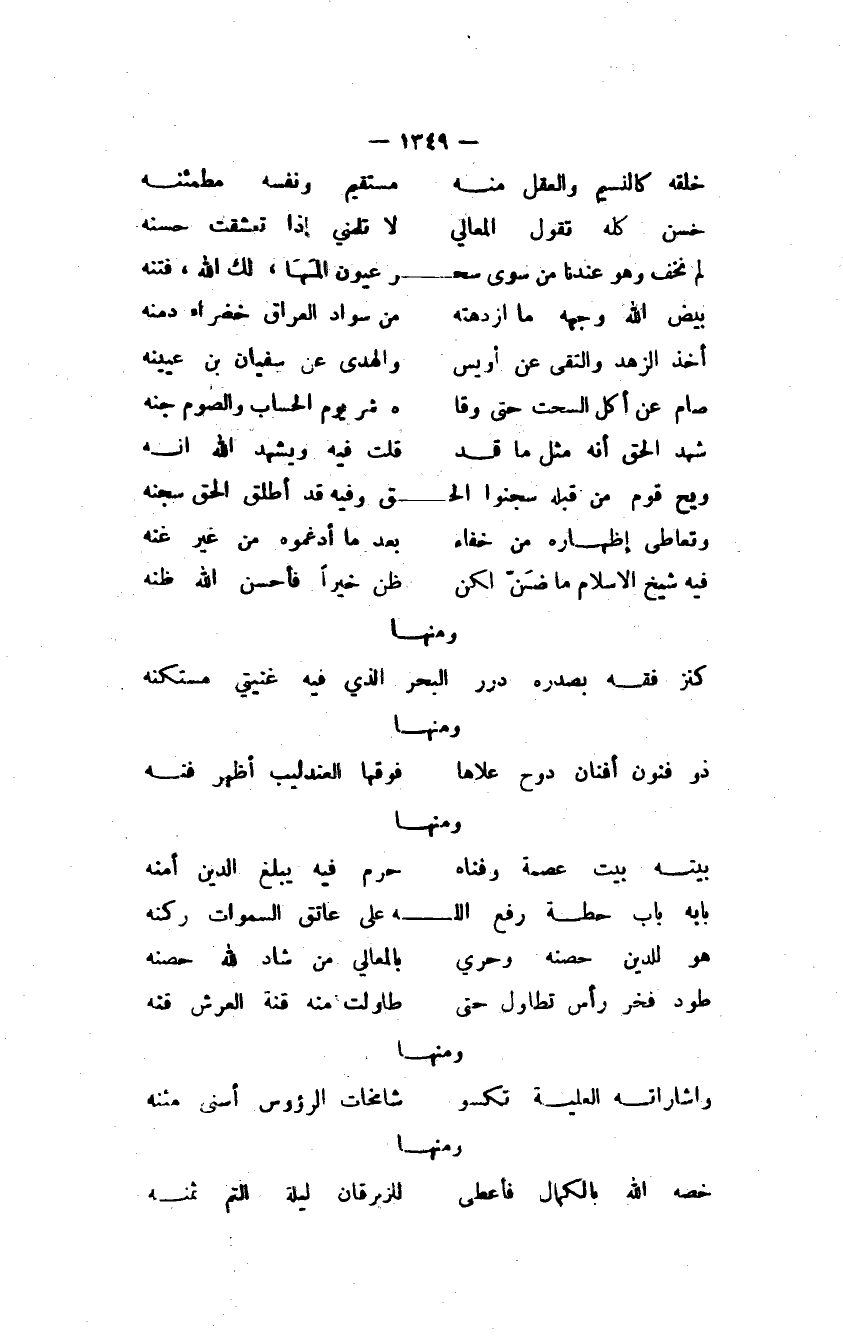 — ١٣٤٩ —
خلقه كالنسيم والعقل منـــه مستقيم ونفسه مطمئنـــه
حسن كله تقول المعالي لا تلمني إذا تعشقت حسنه
لم نخف وهو عندنا من سوى سحـــر عيون المَهَا ، لك الله ، فتنه
بيض الله وجهه ما ازدهته من سواد العراق خضراء دمنه
أخذ الزهد والتقى عن أويس والهدى عن سفيان بن عيينه
صام عن أكل السحت حتى وقا ه شر يوم الحساب والصوم جنه
شهد الحق أنه مثل ما قـــد قلت فيه ويشهد الله انـــه
ويح قوم من قبله سجنوا الحـــق وفيه قد أطلق الحق سجنه
وتعاطى إظهـــاره من خفاء بعد ما أدغموه من غير غنه
فيه شيخ الاسلام ما ضَنَّ لكن ظن خيراً فأحسن الله ظنه
ومنهـــا
كنز فقـــه بصدره درر البحر الذي فيه غنيتي مستكنه
ومنهـــا
ذو فنون أفنان دوح علاها فوقها العندليب أظهر فنـــه
ومنهـــا
بيتـــه بيت عصمة وفناه حرم فيه يبلغ الدين أمنه
بابه باب حطـــة رفع اللـــه على عاتق السموات ركنه
هو للدين حصنه وحري بالمعالي من شاد لله حصنه
طود فخر رأس تطاول حتى طاولت منه قنة العرش قنه
ومنهـــا
واشاراتـــه العليـــة تكسو شامخات الرؤوس أسنى مننه
ومنهـــا
خصه الله بالكمال فأعطى للزبرقان ليلة التم ثمنـــه